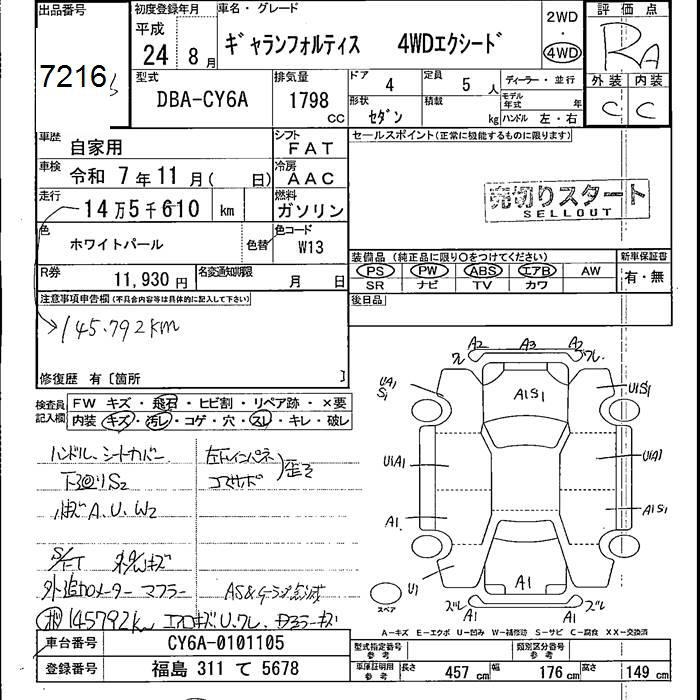 出品番号
7216
初度登録年月
平成
24年 8月
車名・グレード
ギャランフォルティス 4WDエクシード
2WD
・
4WD
評価点
RA
外装 内装
C C
型式
DBA-CY6A
排気量
1798 CC
ドア 4
定員 5 人
ディーラー・並行
形状 セダン
積載 kg
モデル年式 年
ハンドル 左・右
車歴 自家用
シフト FAT
セールスポイント(正常に機能するものに限ります)
車検 令和 7年11月( 日)
冷房 AAC
走行 14万5千610 km
燃料 ガソリン
売切りスタート
SELLOUT
色 ホワイトパール
色替
色コード W13
R券 11,930円
名変通知期限 月 日
装備品 (純正品に限り○をつけてください)
新車保証書
PS PW ABS エアB AW
有・無
SR ナビ TV カワ
後日品
注意事項申告欄(不具合内容等は具体的に記入して下さい)
145.792km
修復歴 有〔箇所 〕
検査員記入欄
FW キズ・飛石・ヒビ割・リペア跡・×要
内装 キズ・汚レ・コゲ・穴・スレ・キレ・破レ
ハンドル、シートカバー
下回りS2
A.U.W2
外追加メーター マフラー
145792km
A2 A3 A2
UA1
S1
A1S1
U1S1
U1A1
U1A1
A1
A1S1
U1
A1
スペア
A1 A1
A-キズ E-エクボ U-凹み W-補修跡 S-サビ C-腐食 XX-交換済
車台番号 CY6A-0101105
型式指定番号 参考
類別区分番号 参考
登録番号 福島 311 て 5678
車庫証明用 参考
長さ 457 cm 幅 176 cm 高さ 149 cm